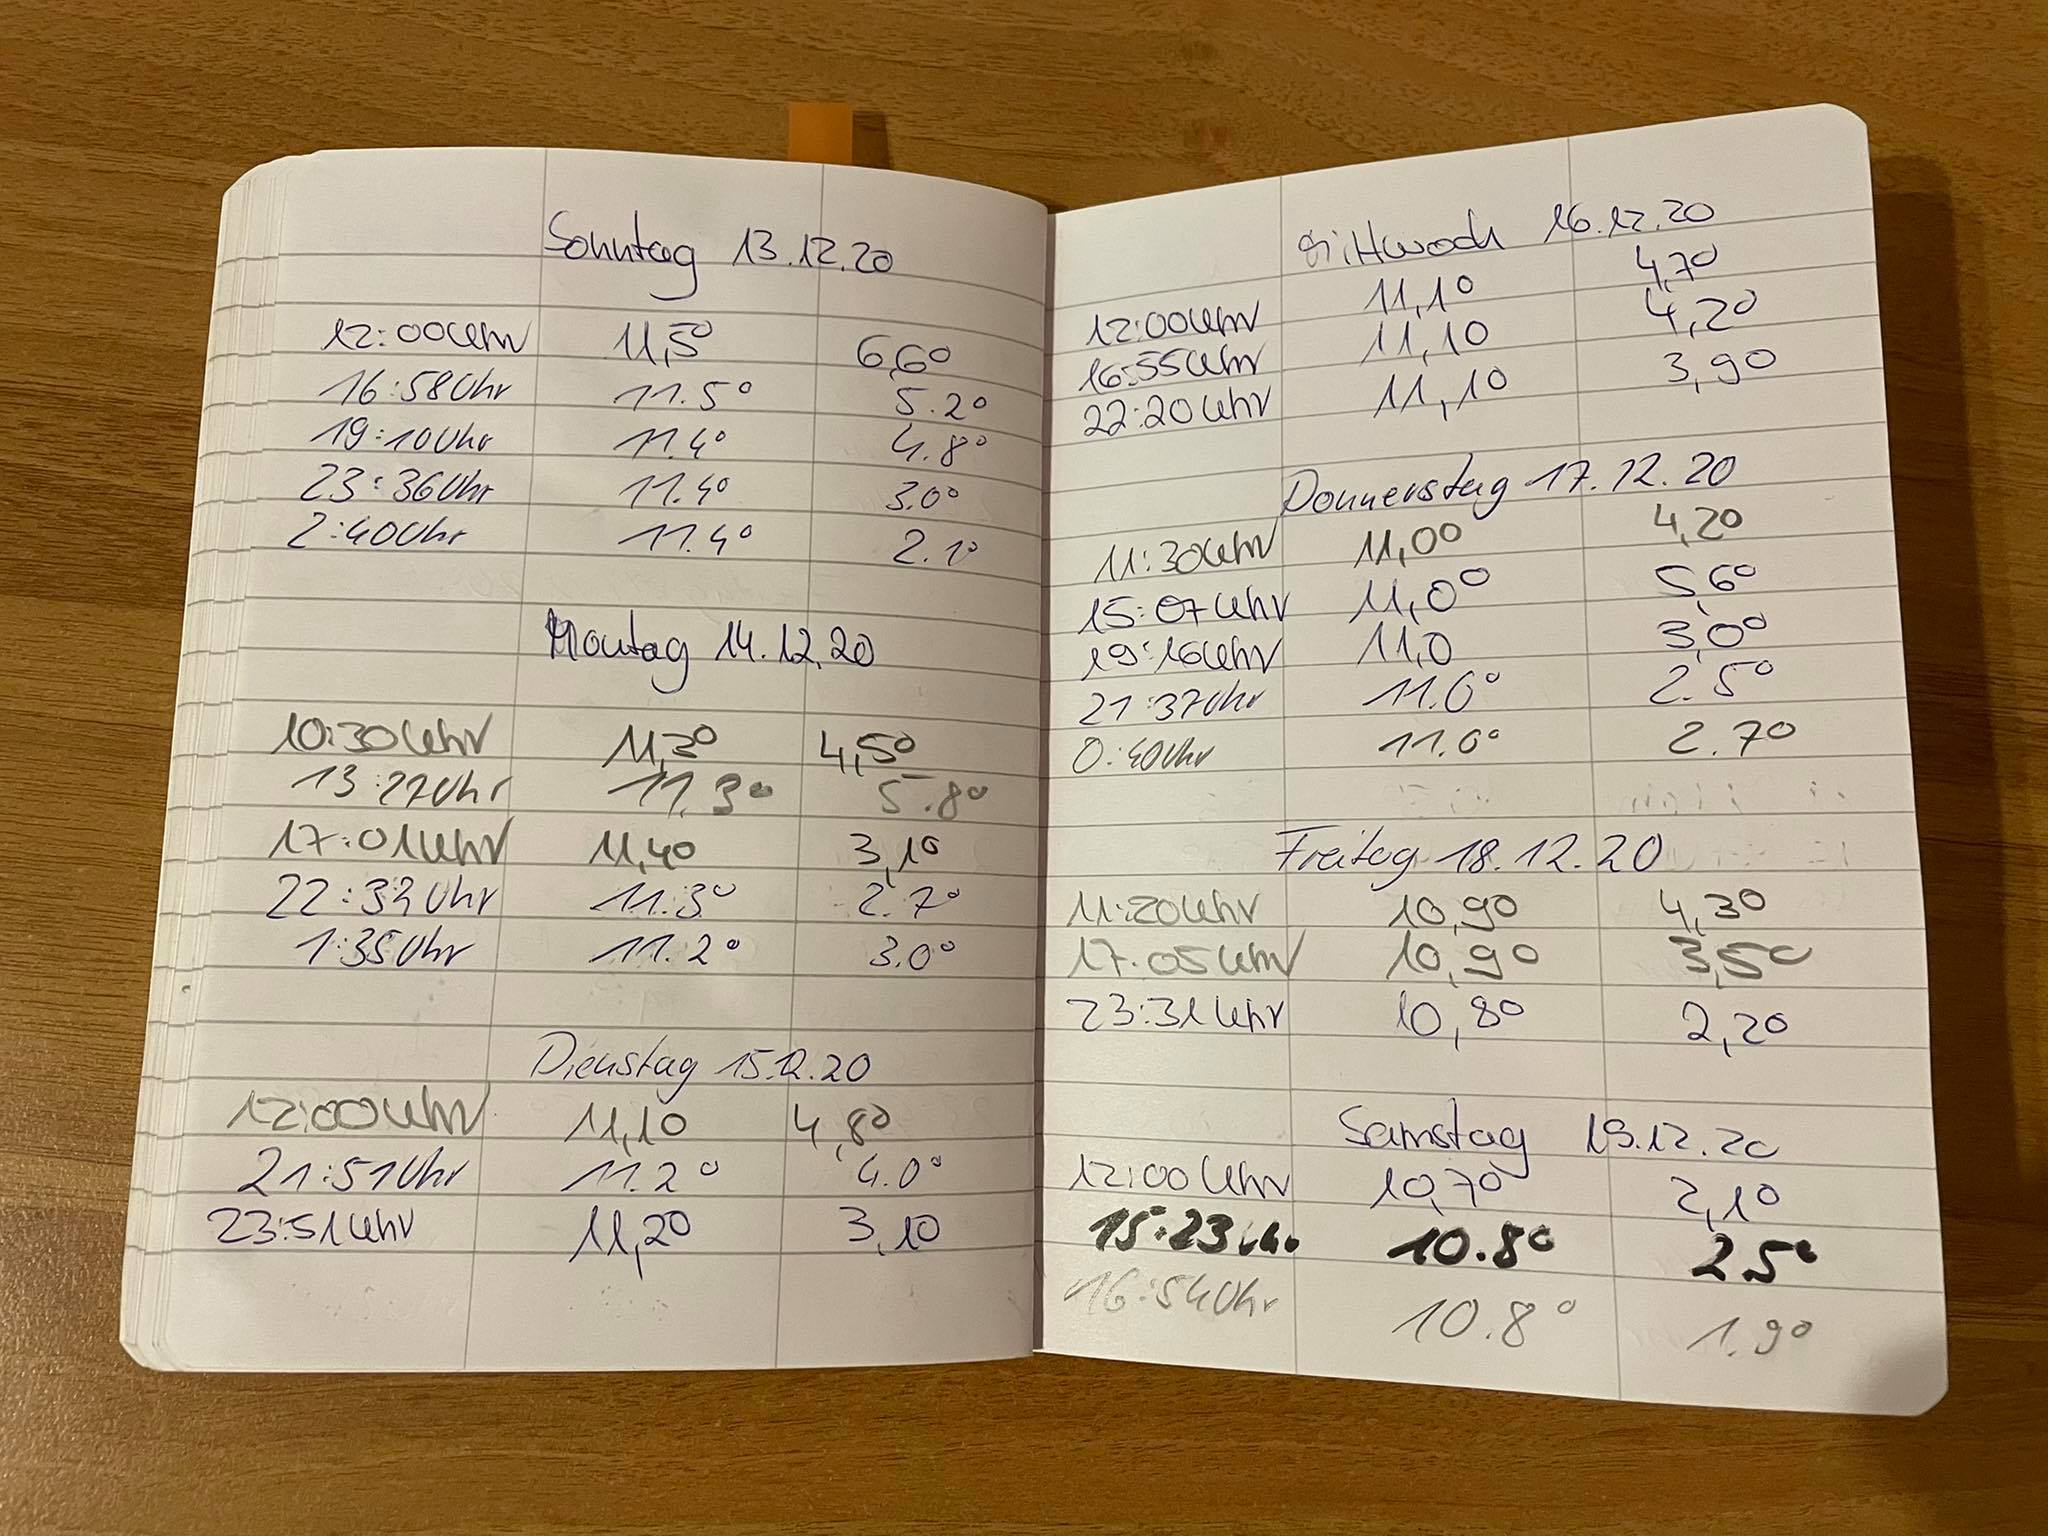 Sonntag 13.12.20
12:00 Uhr 11,5° 6,6°
16:58 Uhr 11.5° 5.2°
19:10 Uhr 11.4° 4.8°
23:36 Uhr 11.4° 3.0°
2:40 Uhr 11.4° 2.1°
Montag 14.12.20
10:30 Uhr 11,3° 4,5°
13:27 Uhr 11.3° 5.8°
17:01 Uhr 11,4° 3,1°
22:32 Uhr 11.3° 2.7°
1:35 Uhr 11.2° 3.0°
Dienstag 15.12.20
12:00 Uhr 11,1° 4,8°
21:51 Uhr 11.2° 4.0°
23:51 Uhr 11,2° 3,1°
Mittwoch 16.12.20
12:00 Uhr 11,1° 4,7°
16:55 Uhr 11,1° 4,2°
22:20 Uhr 11,1° 3,9°
Donnerstag 17.12.20
11:30 Uhr 11,0° 4,2°
15:07 Uhr 11,0° 5,6°
19:16 Uhr 11,0 3,0°
21:37 Uhr 11.0° 2.5°
0:40 Uhr 11.0° 2.7°
Freitag 18.12.20
11:20 Uhr 10,9° 4,3°
17:05 Uhr 10,9° 3,5°
23:31 Uhr 10,8° 2,2°
Samstag 19.12.20
12:00 Uhr 10,7° 2,1°
15:23 10.8° 2.5°
16:54 Uhr 10.8° 1.9°